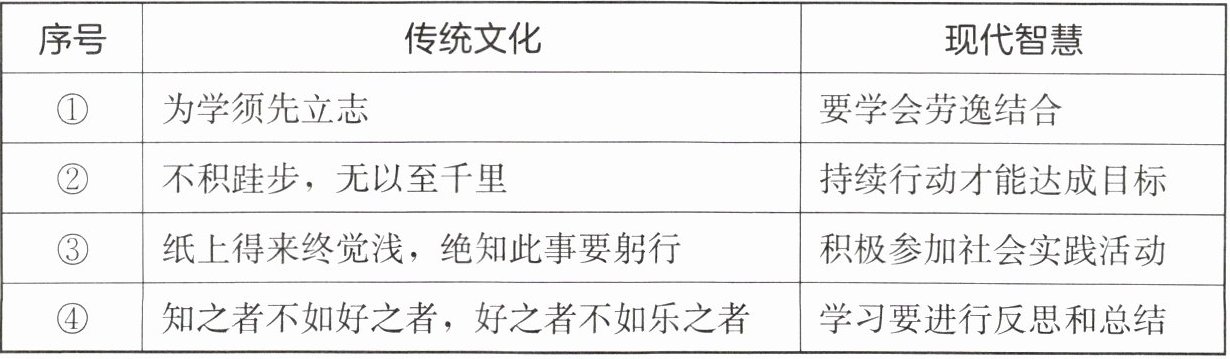 序号 传统文化 现代智慧
① 为学须先立志 要学会劳逸结合
② 不积跬步，无以至千里 持续行动才能达成目标
③ 纸上得来终觉浅，绝知此事要躬行 积极参加社会实践活动
④ 知之者不如好之者，好之者不如乐之者 学习要进行反思和总结